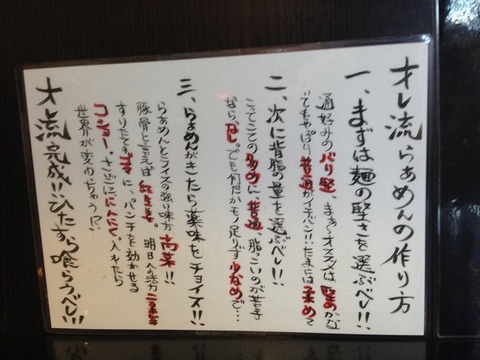 オレ流らぁめんの作り方
一、まずは麺の堅さを選ぶべし!!
通好みのバリ堅、まぁオススメは堅めかな
でもやっぱり普通がイチバン!!たまには柔めで
二、次に背脂の量を選ぶべし!!
こってこての多めに、普通、脂っこいのが苦手
ならなし。でも何だかモノ足りず少なめで…
三、らぁめんがきたら薬味をチョイス!!
らぁめんとライスの強い味方高菜!!
豚骨と言えば紅生姜、明日への活力
すりたてゴマに、パンチを効かせる
コショー、さらににんにく入れたら
世界が変わっちゃうっ!!
オレ流完成!!ひたすら喰らうべし!!